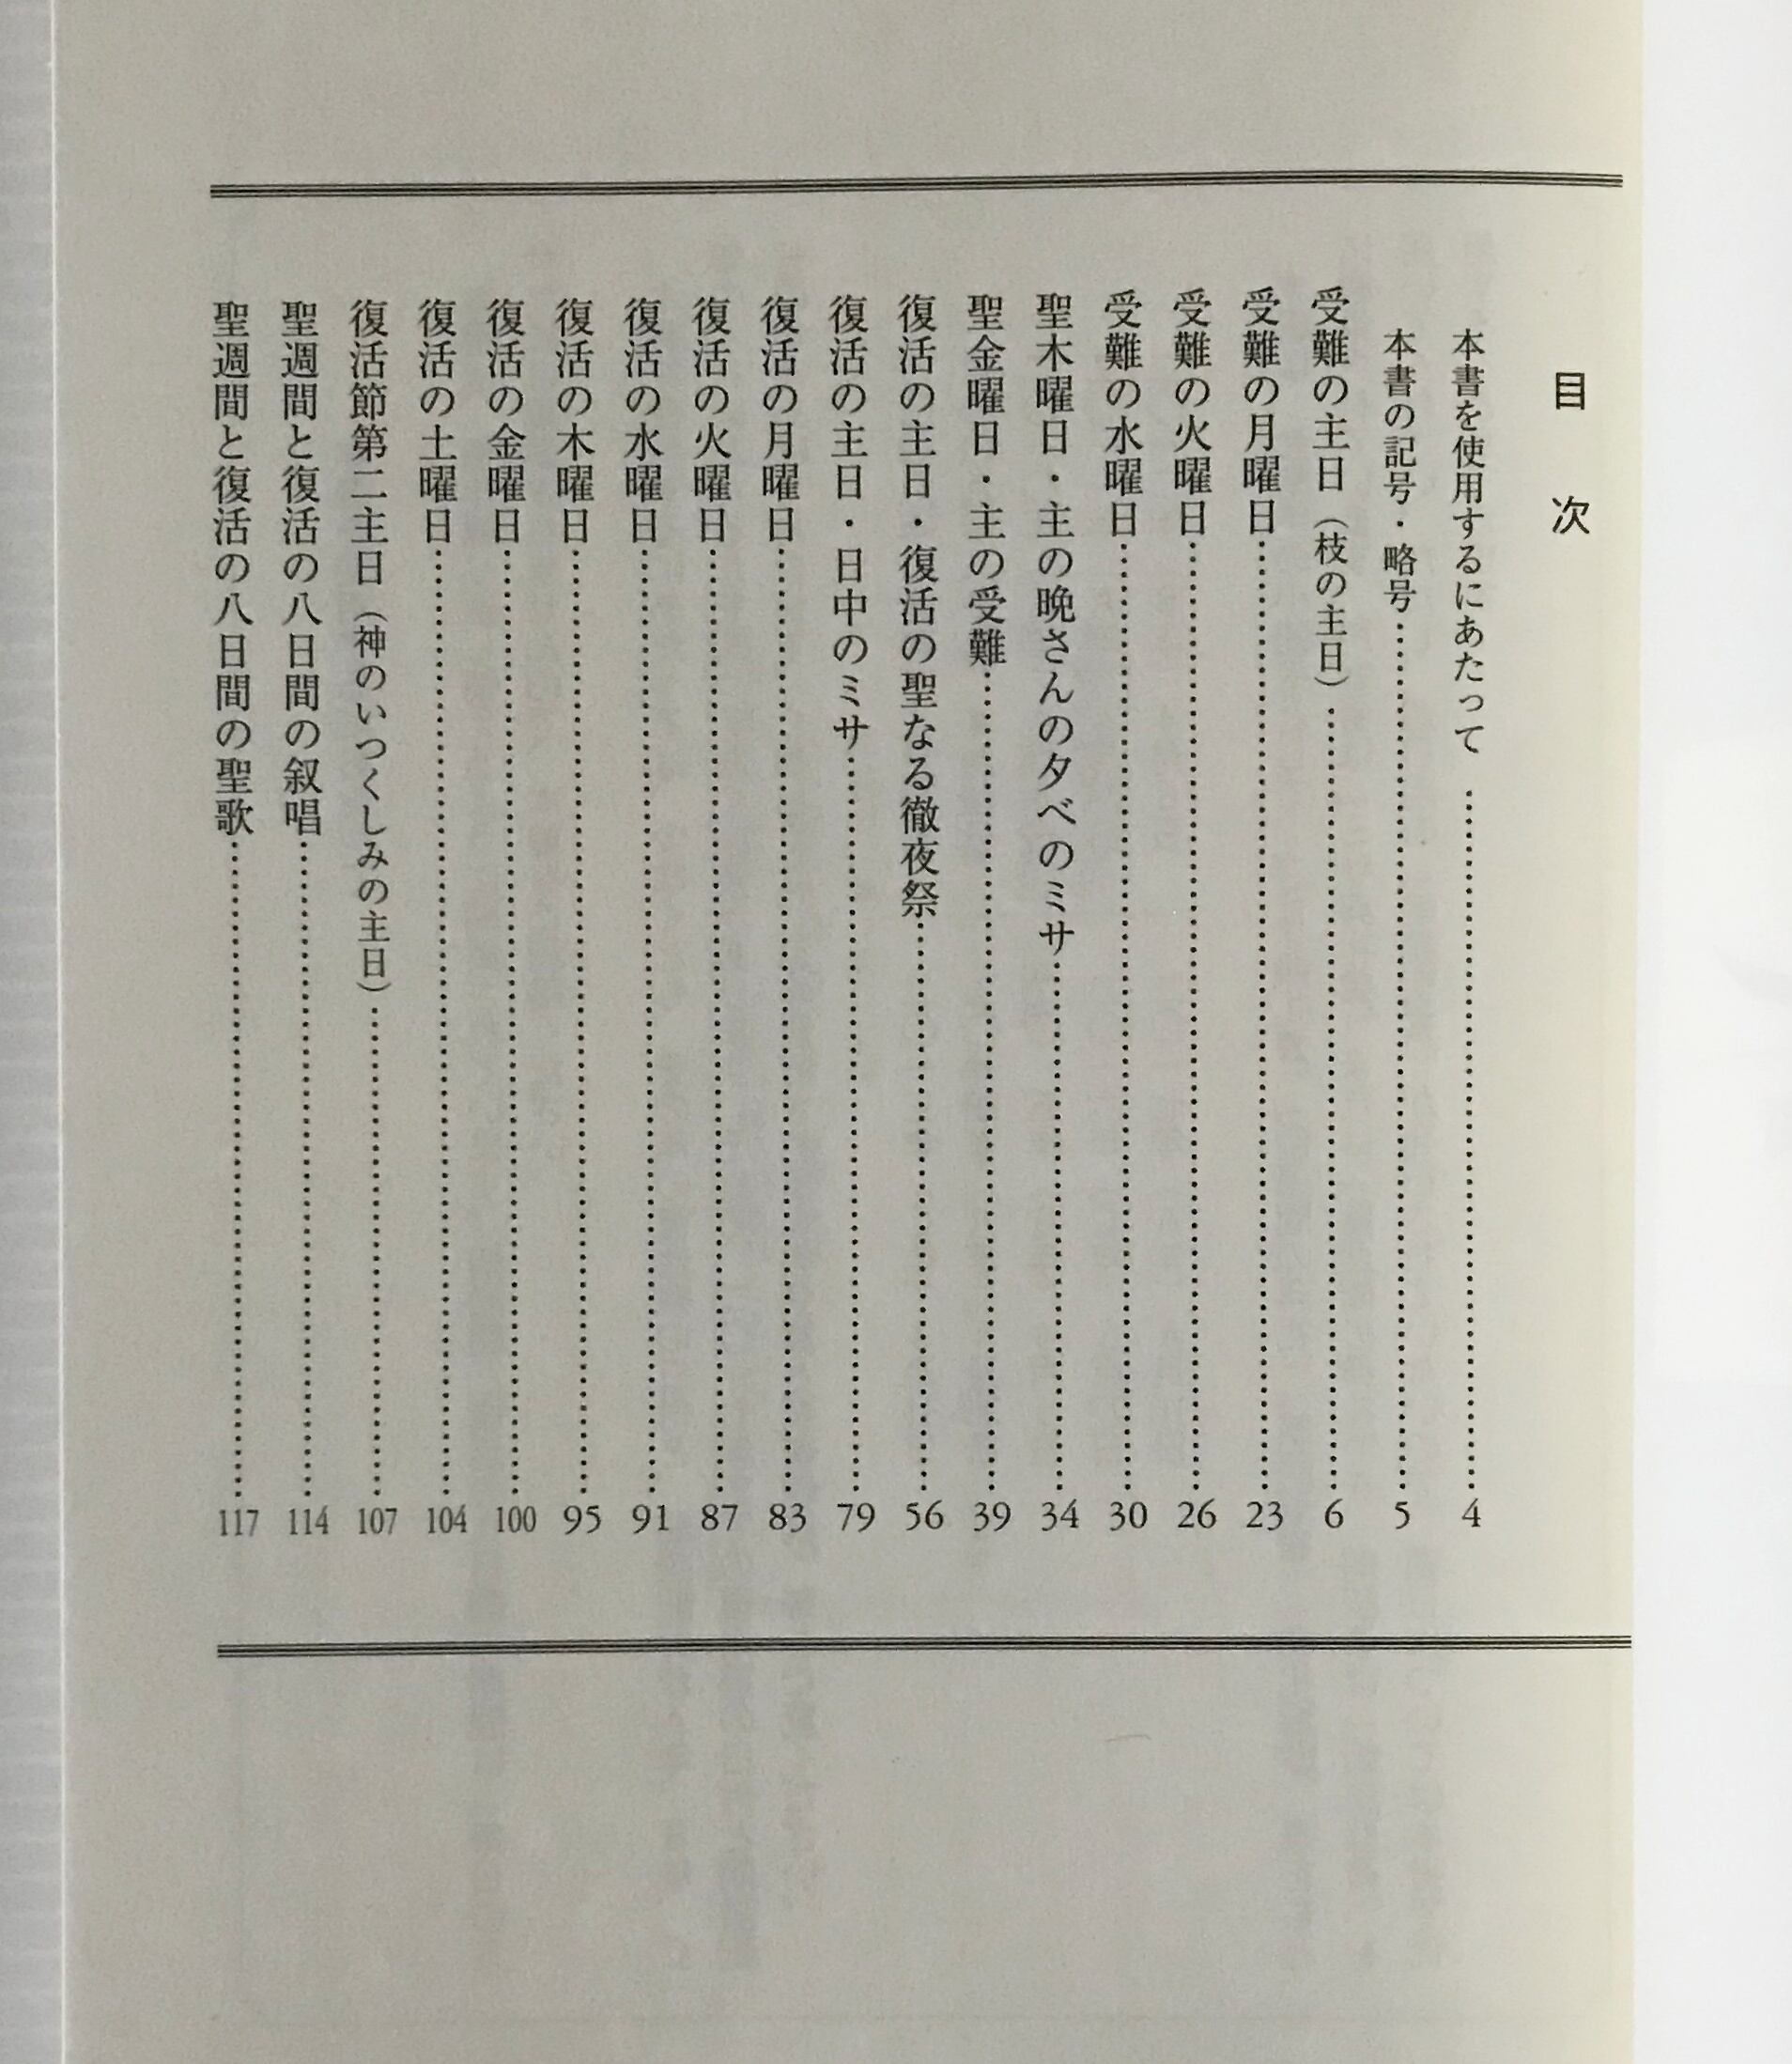 目次
本書を使用するにあたって……4
本書の記号・略号……5
受難の主日（枝の主日）……6
受難の月曜日……23
受難の火曜日……26
受難の水曜日……30
聖木曜日・主の晩さんの夕べのミサ……34
聖金曜日・主の受難……39
復活の主日・復活の聖なる徹夜祭……56
復活の主日・日中のミサ……79
復活の月曜日……83
復活の火曜日……87
復活の水曜日……91
復活の木曜日……95
復活の金曜日……100
復活の土曜日……104
復活節第二主日（神のいつくしみの主日）……107
聖週間と復活の八日間の叙唱……114
聖週間と復活の八日間の聖歌……117